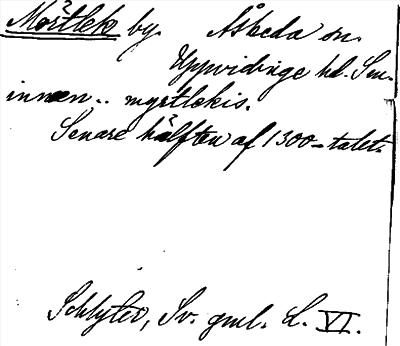 Mörtlek by. Åsheda sn.
Uppvidinge hd. Sm.
innan.. myrtlekis.
Senare hälften af 1300-talet.
Schlyter, Sv. gml. L. VI.